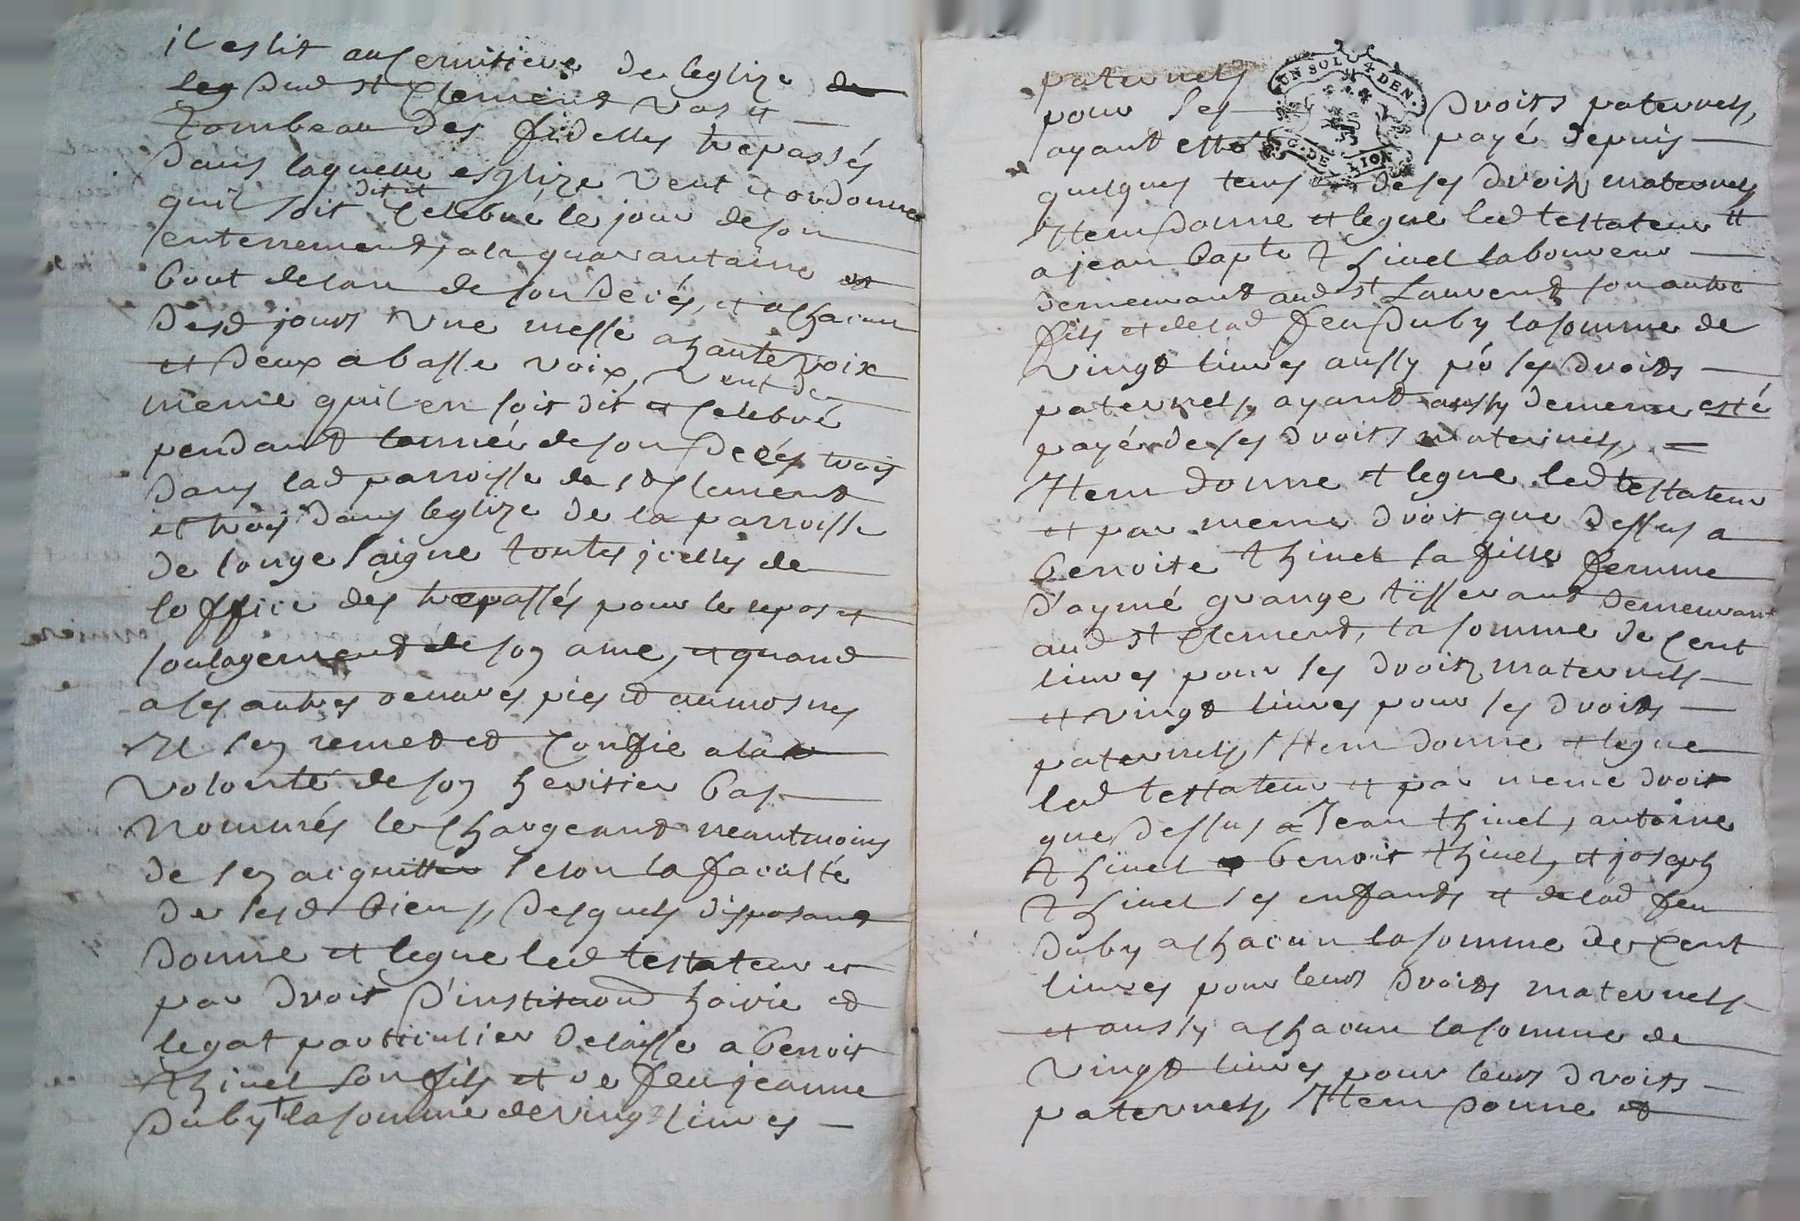 il eslit au semitiere de leglize de
leg dud st Clement vas et
tombeau des fidelles trepassés
dans laquelle esglize veut et ordonne
quil soit dit et celebré le jour de son
enterrement, a la quarantaine et
bout de lan de son decés, et a chacun
desd jours une messe a haute voix
et deux a basse voix, veut de
meme quil en soit dit et celebré
pendant lannée de son decés trois
dans lad parroisse de st Clement
et trois dans leglize de la parroisse
de longesaigne toutes icelles de
loffice des trepassés pour le repos et
soulagement de son ame, et quand
a ses autres oeuvres pies et aumosnes
Il sen remet et confie a la
volonté de son heritier bas
nommés le chargeant neantmoins
de sen acquitter selon la faculté
de sesd biens, desquels disposant
donne et legue led testateur et
par droit d'institution hoirie et
legat particulier delaisse a benoit
thinel son fils et de feu jeanne
duby la somme de vingt livres
paternels
UN SOL 4 DEN.
G. DE LION
pour ses droits paternels,
ayant esté payé depuis
quelques tems de ses droits maternels
Item donne et legue led testateur
a jean bapte thinel laboureur
demeurant aud st Laurent son autre
fils et de lad feu duby la somme de
vingt livres aussy po ses droits
paternels, ayant aussy de meme esté
payé de ses droits maternels,
Item donne et legue led testateur
et par meme droit que dessus a
benoite thinel sa fille femme
d'aymé grange tisserant demeurant
aud st Clement, la somme de cent
livres pour ses droits maternels
et vingt livres pour ses droits
paternels, Item donne et legue
led testateur et par meme droit
que dessus a Jean thinel, antoine
thinel benoit thinel, et joseph
thinel ses enfants et de lad feu
duby a chacun la somme de cent
livres pour leurs droits maternels
et aussy a chacun la somme de
vingt livres pour leurs droits
paternels, Item donne et